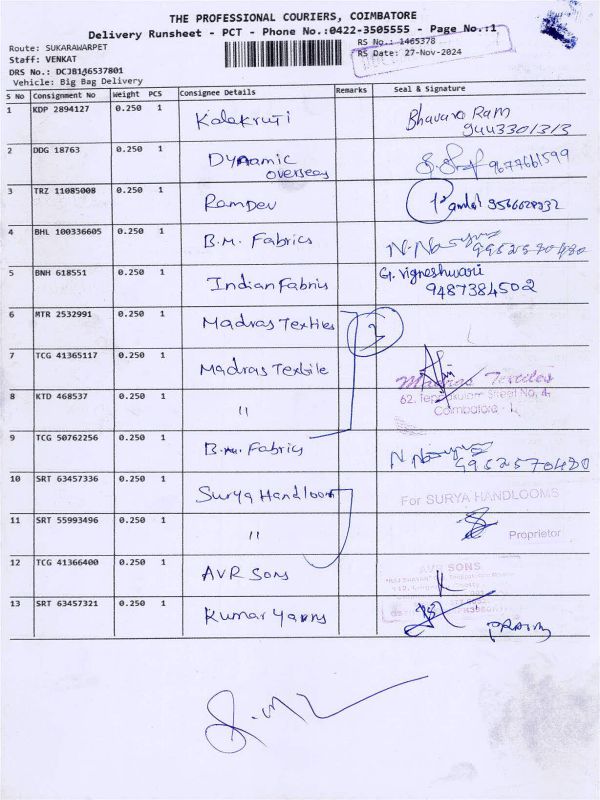 THE PROFESSIONAL COURIERS, COIMBATORE
Delivery Runsheet - PCT - Phone No.:0422-3505555 - Page No.:1
Route: SUKARAWARPET
RS No.: 1465378
Staff: VENKAT
RS Date: 27-Nov-2024
DRS No.: DCJB146537801
Vehicle: Big Bag Delivery
S No Consignment No Weight PCS Consignee Details Remarks Seal & Signature
1 KDP 2894127 0.250 1 Kalakruti Bhavana Ram
9443301313
2 DDG 18763 0.250 1 Dynamic overseas 9677661599
3 TRZ 11085008 0.250 1 Ramdev
4 BHL 100336605 0.250 1 B.M. Fabrics
5 BNH 618551 0.250 1 Indian Fabrics G. Vigneshwari
9487384502
6 MTR 2532991 0.250 1 Madras Textiles 3
7 TCG 41365117 0.250 1 Madras Textile
Madras Textiles
8 KTD 468537 0.250 1 "
Street No. 4,
Coimbatore - 1
9 TCG 50762256 0.250 1 B.M. Fabrics 9952570480
10 SRT 63457336 0.250 1 Surya Handloom
For SURYA HANDLOOMS
11 SRT 55993496 0.250 1 "
Proprietor
12 TCG 41366400 0.250 1 AVR Sons
AVR SONS
13 SRT 63457321 0.250 1 Kumar Yarns